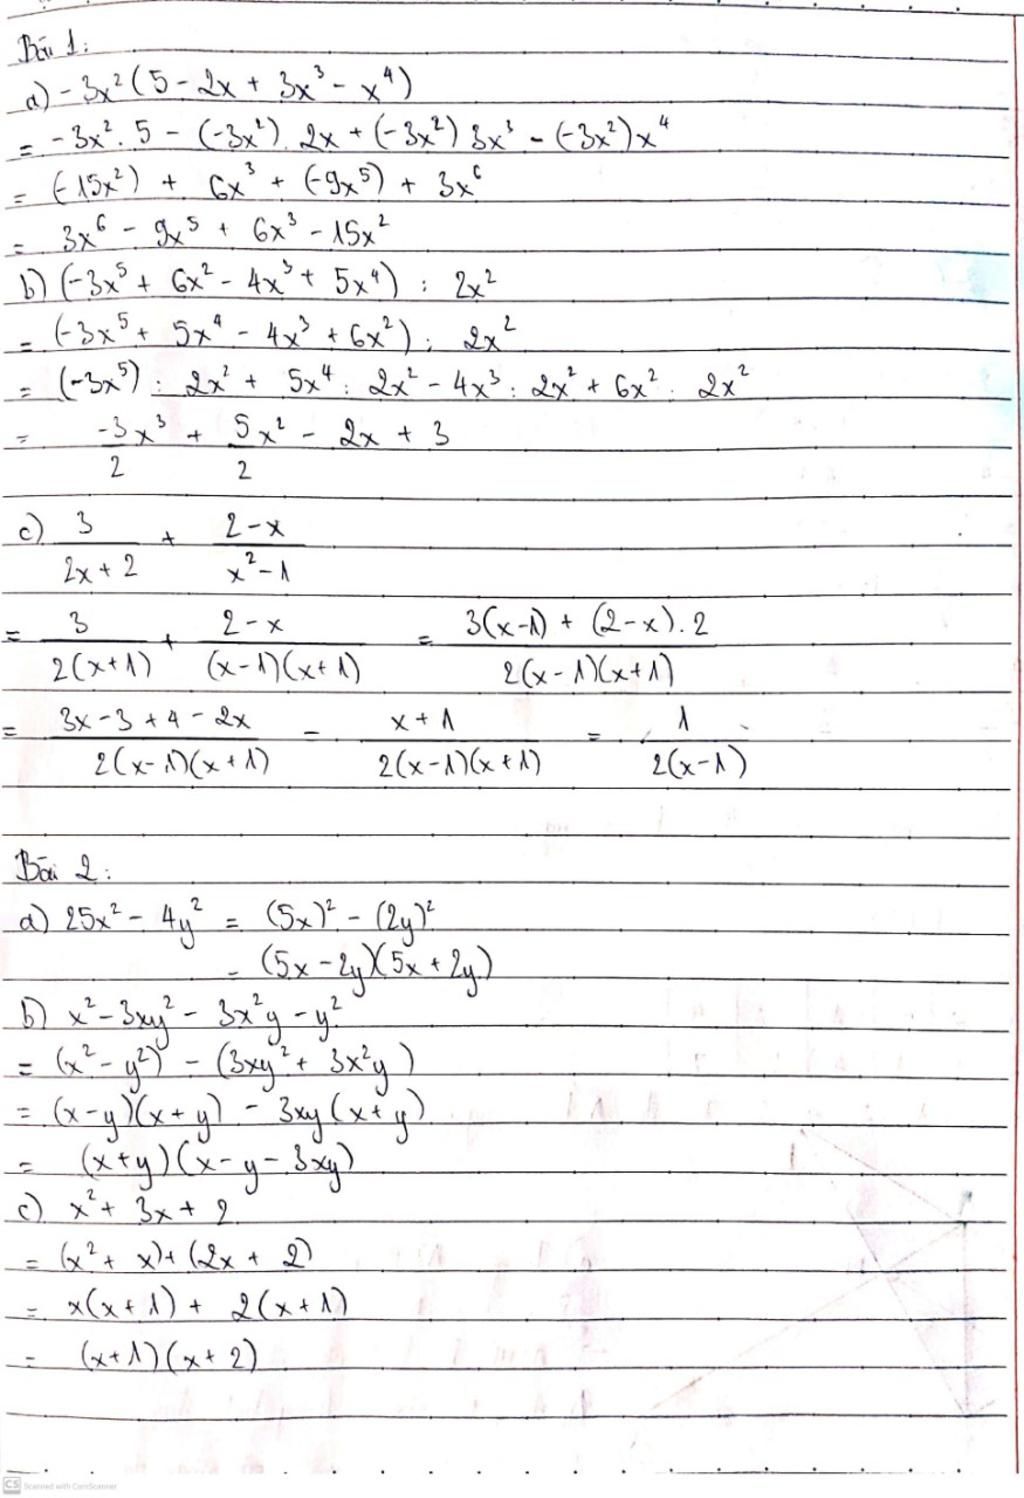 Bài 1:
a) -3x² (5 - 2x + 3x³ - x⁴)
= -3x² . 5 - (-3x²) . 2x + (-3x²) 3x³ - (-3x²)x⁴
= (-15x²) + 6x³ + (-9x⁵) + 3x⁶
= 3x⁶ - 9x⁵ + 6x³ - 15x²
b) (-3x⁵ + 6x² - 4x³ + 5x⁴) : 2x²
= (-3x⁵ + 5x⁴ - 4x³ + 6x²) : 2x²
= (-3x⁵) : 2x² + 5x⁴ : 2x² - 4x³ : 2x² + 6x² : 2x²
= -3/2 x³ + 5/2 x² - 2x + 3
c) 3/(2x + 2) + (2 - x)/(x² - 1)
= 3/(2(x+1)) + (2 - x)/((x-1)(x+1)) = (3(x-1) + (2-x).2)/(2(x-1)(x+1))
= (3x - 3 + 4 - 2x)/(2(x-1)(x+1)) = (x + 1)/(2(x-1)(x+1)) = 1/(2(x-1))
Bài 2:
a) 25x² - 4y² = (5x)² - (2y)²
= (5x - 2y)(5x + 2y)
b) x² - 3xy² - 3x²y - y²
= (x² - y²) - (3xy² + 3x²y)
= (x-y)(x+y) - 3xy(x+y)
= (x+y)(x-y-3xy)
c) x² + 3x + 2
= (x² + x) + (2x + 2)
= x(x+1) + 2(x+1)
= (x+1)(x+2)
CS Scanned with CamScanner